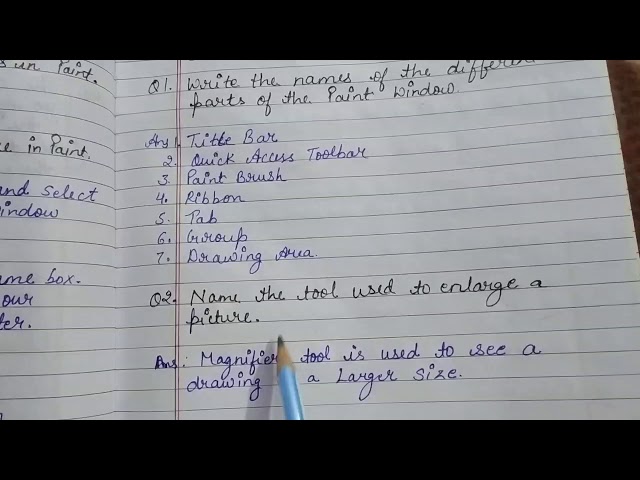 s in Paint.
Q1. Write the names of the
parts of the Paint Window.
Ans 1. Title Bar
2. Quick Access Toolbar
e in Paint.
3. Paint Brush
and select
4. Ribbon
indow
5. Tab
6. Group
7. Drawing Area.
ame box.
Q2. Name the tool used to enlarge a
our
picture.
ter.
Ans: Magnifier tool is used to see a
drawing a Larger size.